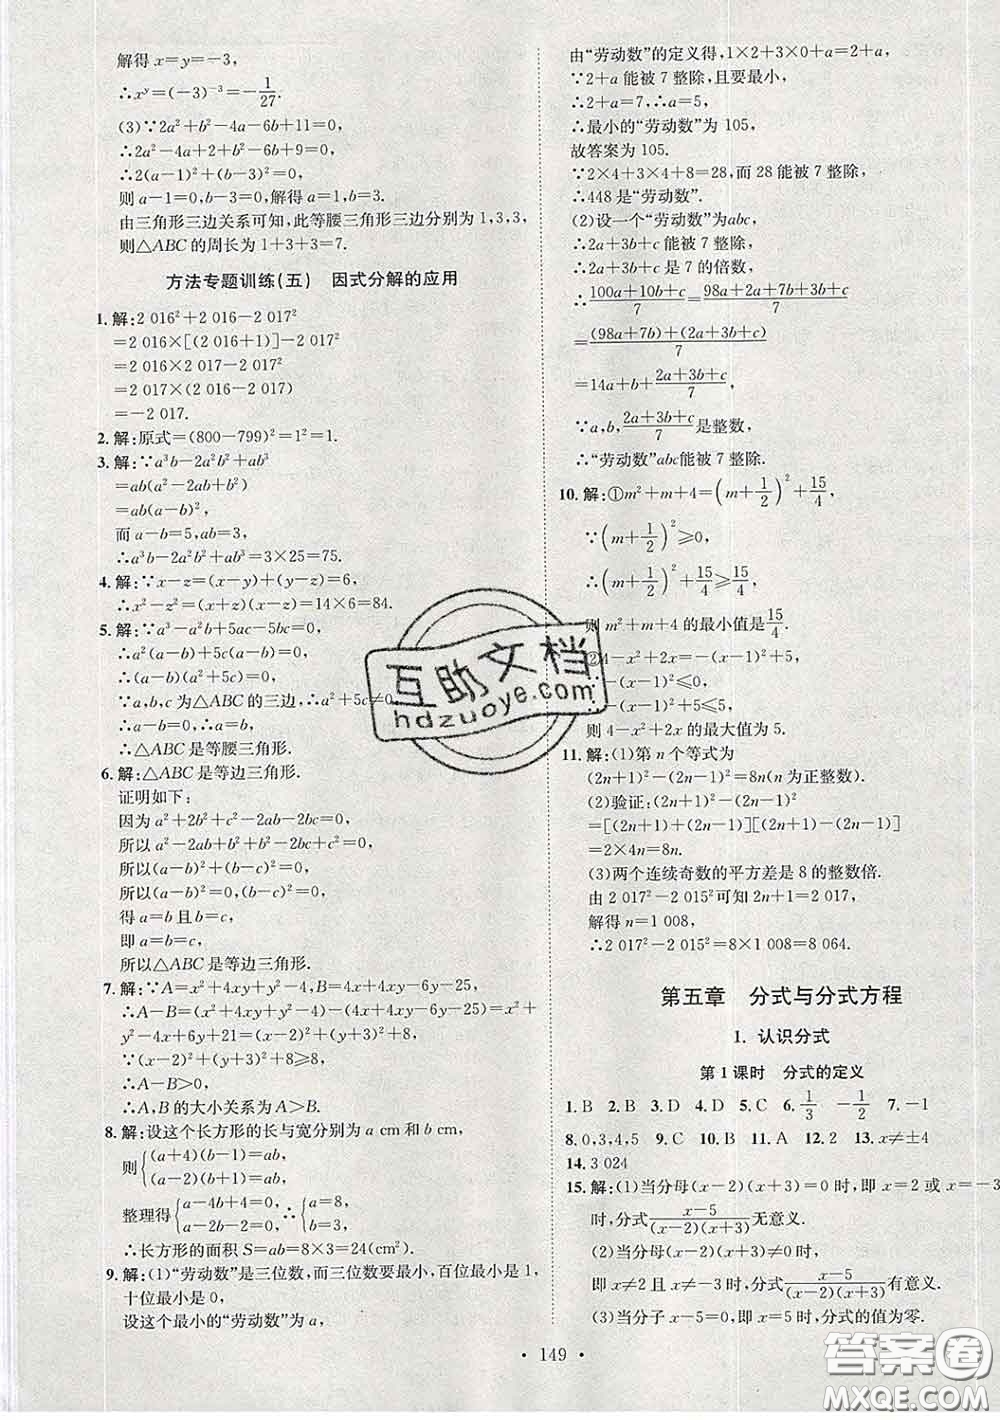 解得x=y=-3,
∴xʸ=(-3)⁻³=-1/27.
(3)∵2a²+b²-4a-6b+11=0,
∴2a²-4a+2+b²-6b+9=0,
∴2(a-1)²+(b-3)²=0,
则a-1=0,b-3=0,解得a=1,b=3.
由三角形三边关系可知,此等腰三角形三边分别为1,3,3,
则△ABC的周长为1+3+3=7.
方法专题训练(五) 因式分解的应用
1. 解:2 016²+2 016-2 017²
=2 016×[(2 016+1)]-2 017²
=2 016×2 017-2 017²
=2 017×(2 016-2 017)
=-2 017.
2. 解:原式=(800-799)²=1²=1.
3. 解:∵a³b-2a²b²+ab³
=ab(a²-2ab+b²)
=ab(a-b)²,
而a-b=5,ab=3,
∴a³b-2a²b²+ab³=3×25=75.
4. 解:∵x-z=(x-y)+(y-z)=6,
∴x²-z²=(x+z)(x-z)=14×6=84.
5. 解:∵a³-a²b+5ac-5bc=0,
∴a²(a-b)+5c(a-b)=0,
∴(a-b)(a²+5c)=0,
∵a,b,c为△ABC的三边,∴a²+5c≠0,
∴a-b=0,∴a=b,
∴△ABC是等腰三角形.
6. 解:△ABC是等边三角形.
证明如下:
因为a²+2b²+c²-2ab-2bc=0,
所以a²-2ab+b²+b²-2bc+c²=0,
所以(a-b)²+(b-c)²=0,
所以(a-b)²=0,(b-c)²=0,
得a=b且b=c,
即a=b=c,
所以△ABC是等边三角形.
7. 解:∵A=x²+4xy+y²-4,B=4x+4xy-6y-25,
∴A-B=x²+4xy+y²-4-(4x+4xy-6y-25)=x²+
y²-4x+6y+21=(x-2)²+(y+3)²+8,
∵(x-2)²+(y+3)²+8>0,
∴A-B>0,
∴A,B的大小关系为A>B.
8. 解:设这个长方形的长与宽分别为a cm和b cm,
则{(a+4)(b-1)=ab,
(a-2)(b+1)=ab,
整理得{a-4b+4=0, ∴{a=8,
a-2b-2=0, b=3,
∴长方形的面积S=ab=8×3=24(cm²).
9. 解:(1)“劳动数”是三位数,而三位数要最小,百位最小是1,
十位最小是0,
设这个最小的“劳动数”为a,
由“劳动数”的定义得,1×2+3×0+a=2+a,
∵2+a能被7整除,且要最小,
∴2+a=7,∴a=5,
∴最小的“劳动数”为105,
故答案为105.
∵2×4+3×4+8=28,而28能被7整除,
∴448是“劳动数”.
(2)设一个“劳动数”为abc,
∴2a+3b+c能被7整除,
∴2a+3b+c是7的倍数,
∴(100a+10b+c)/7=(98a+2a+7b+3b+c)/7
=((98a+7b)+(2a+3b+c))/7
=14a+b+(2a+3b+c)/7,
∵a,b,(2a+3b+c)/7是整数,
∴“劳动数”abc能被7整除.
10. 解:①m²+m+4=(m+1/2)²+15/4,
∵(m+1/2)²≥0,
∴(m+1/2)²+15/4≥15/4,
则m²+m+4的最小值是15/4.
②4-x²+2x=-(x-1)²+5,
∵-(x-1)²≤0,
∴-(x-1)²+5≤5,
则4-x²+2x的最大值为5.
11. 解:(1)第n个等式为
(2n+1)²-(2n-1)²=8n(n为正整数).
(2)验证:(2n+1)²-(2n-1)²
=[(2n+1)+(2n-1)][(2n+1)-(2n-1)]
=2×4n=8n.
(3)两个连续奇数的平方差是8的整数倍.
由2 017²-2 015²=2 017²可知2n+1=2017,
解得n=1 008,
∴2 017²-2 015²=8×1 008=8 064.
第五章 分式与分式方程
1. 认识分式
第1课时 分式的定义
1. B 2. B 3. D 4. D 5. C 6. 1/3 -1/2 7. -1
8. 0,3,4,5 9. C 10. B 11. A 12. 2 13. x≠±4
14. 3 024
15. 解:(1)当分母(x-2)(x+3)=0时,即x=2或x=-3
时,分式(x-5)/((x-2)(x+3))无意义.
(2)当分母(x-2)(x+3)≠0时,
即x≠2且x≠-3时,分式(x-5)/((x-2)(x+3))有意义.
(3)当分子x-5=0,即x=5时,分式的值为零.
• 149 •
互助文档
hdzuoye.com
答案圈
MXQE.COM